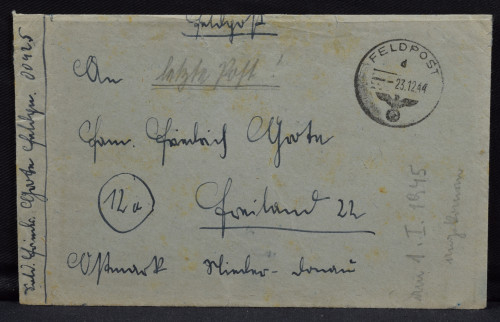 Feldpost
An
letzte Post!
Fam. Friedrich Grote
12a
Freiland 22
Ostmark Nieder-Donau
FELDPOST
d
23.12.44
am 1. I. 1945
angekommen
Grote Feldpn. 00425